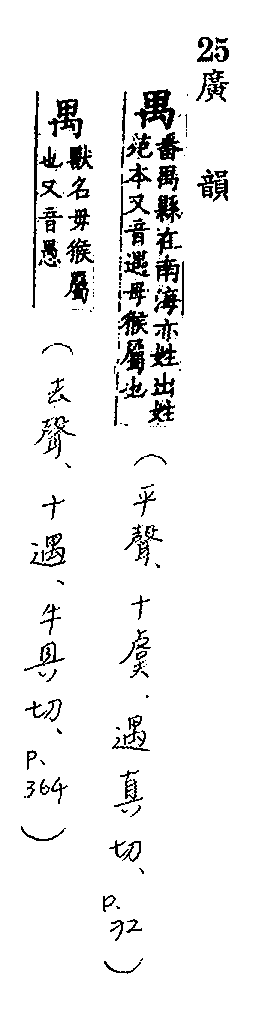 25 廣韻
禺 番禺縣在南海亦姓出姓
苑本又音遇母猴屬也
(平聲、十虞、遇真切、p.72)
禺 獸名母猴屬
也又音愚
(去聲、十遇、牛具切、p.364)